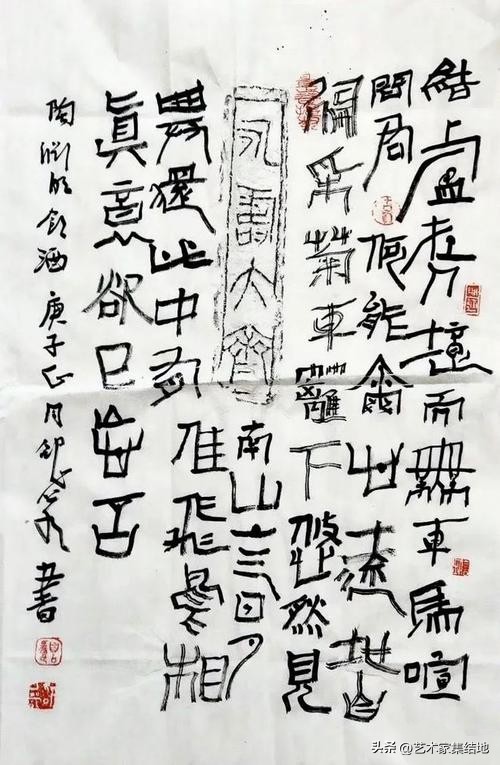 結廬在人境而無車馬喧
問君何能爾心遠地自
偏采菊東籬下悠然見
南山气日夕
佳飛鳥相
與還此中有
眞意欲已忘言
陶淵明飲酒庚子正月书
头条 @艺术家集结地